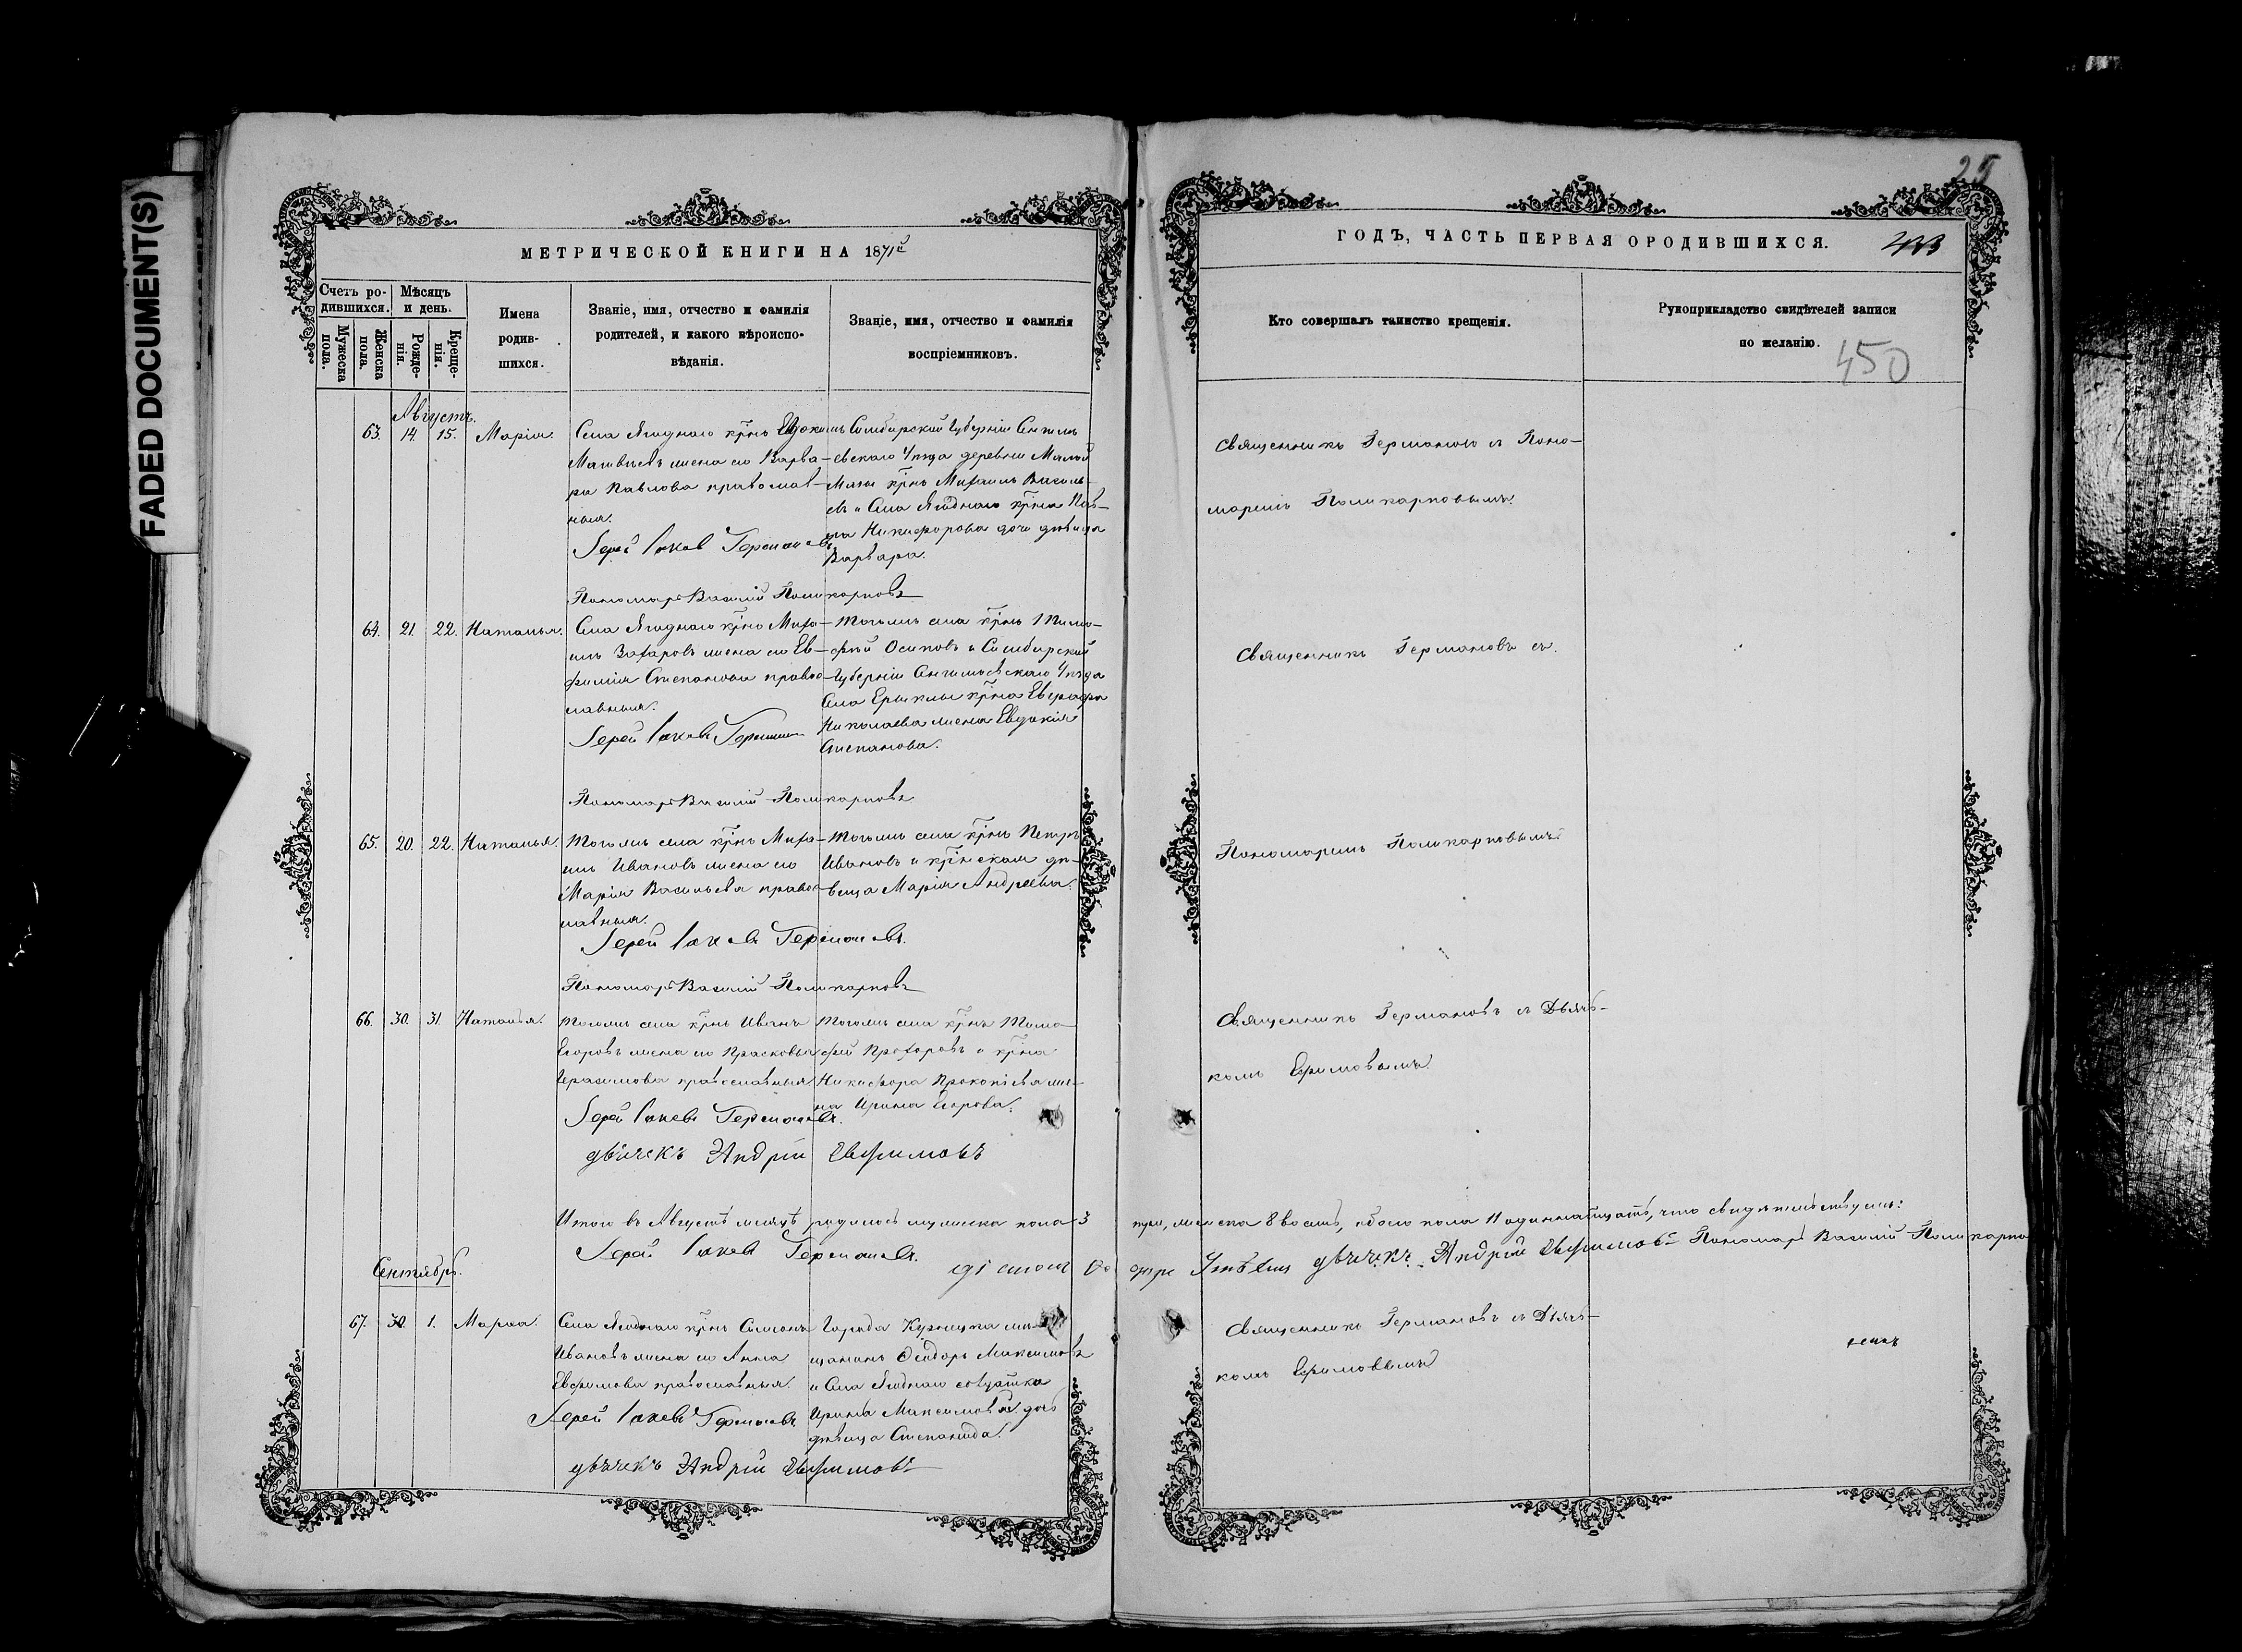 FADED DOCUMENT(S)
25
МЕТРИЧЕСКОЙ КНИГИ НА 1871й
ГОДЪ, ЧАСТЬ ПЕРВАЯ О РОДИВШИХСЯ.
433
450
Счетъ ро-
дившихся.
Мужеска
пола.
Женска
пола.
Мѣсяцъ
и день.
Рожде-
нія.
Креще-
нія.
Имена
родив-
шихся.
Званіе, имя, отчество и фамилія
родителей, и какого вѣроиспо-
вѣданія.
Званіе, имя, отчество и фамилія
воспріемниковъ.
Кто совершалъ таинство крещенія.
Рукоприкладство свидѣтелей записи
по желанію.
Августъ.
63. 14. 15. Марія.
Села Ягоднаго крнъ Евдокимъ
Матвѣевъ жена его Варва-
ра Павлова православ-
ныя.
Іерей Іаковъ Германовъ
Пономарь Василій Поликарповъ
Симбирской Губерніи Сенгиле-
евскаго Уѣзда деревни Малой
крнъ Михаилъ Василь-
евъ и Села Ягоднаго крна Пав-
ла Никифорова дочь дѣвица
Варвара.
Священникъ Германовъ съ Поно-
маремъ Поликарповымъ.
64. 21. 22. Наталья.
Села Ягоднаго крнъ Миха-
илъ Захаровъ жена его Ев-
фимія Степанова право-
славныя.
Іерей Іаковъ Германовъ
Пономарь Василій Поликарповъ
Тогожъ села крнъ Тимо-
фей Осиповъ и Симбирской
Губерніи Сенгилеевскаго Уѣзда
Села Ерыклы крна Евграфа
Николаева жена Евдокія
Степанова.
Священникъ Германовъ съ.
65. 20. 22. Наталья.
Тогожъ села крнъ Миха-
илъ Ивановъ жена его
Марія Васильева право-
славныя.
Іерей Іаковъ Германовъ.
Пономарь Василій Поликарповъ
Тогожъ села крнъ Петръ
Ивановъ и крнская дѣ-
вица Марія Андреева.
Пономаремъ Поликарповымъ.
66. 30. 31. Наталья.
Тогожъ села крнъ Иванъ
Егоровъ жена его Прасковья
Герасимова православныя.
Іерей Іаковъ Германовъ.
дьячекъ Андрей Евфимовъ
Тогожъ села крнъ Тимо-
фей Прохоровъ и крна
Никифора Прокопіева же-
на Ирина Егорова.
Священникъ Германовъ съ Дьяч-
комъ Ефимовымъ
Итого въ Августѣ мѣсяцѣ родилось мужеска пола 3 три, женска 8 восмь, обоего пола 11 одиннадцать, что свидѣтельствуемъ:
Іерей Іаковъ Германовъ.
дьячекъ Андрей Евфимовъ Пономарь Василій Поликарпо
Сентябрь.
67. 30. 1. Марѳа.
Села Ягоднаго крнъ Симеонъ
Ивановъ жена его Анна
Евфимова православныя.
Іерей Іаковъ Германовъ
дьячекъ Андрей Евфимовъ
Города Кузнецка мѣ-
щанинъ Ѳеодоръ Максимовъ
и Села Ягоднаго солдатка
Ирина Максимова дочь
дѣвица Степанида.
Священникъ Германовъ съ Дьяч-
комъ Ефимовымъ